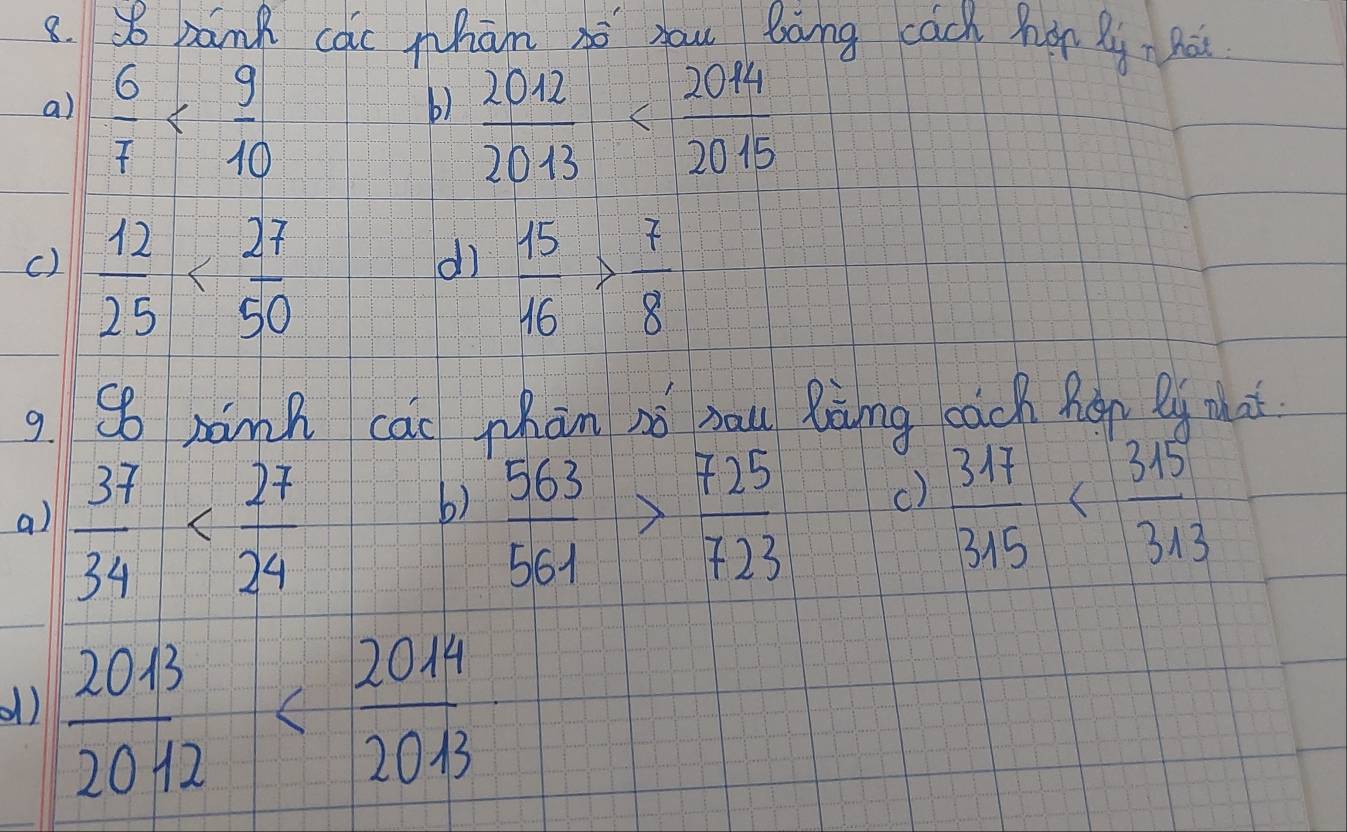 8. So sánh các phân số sau bằng cách hợp lý nhất.
a) 6/7 < 9/10 b) 2012/2013 < 2014/2015
c) 12/25 < 27/50 d) 15/16 > 7/8
9. So sánh các phân số sau bằng cách hợp lý nhất.
a) 37/34 < 27/24 b) 563/561 > 725/723 c) 317/315 < 315/313
d) 2013/2012 < 2014/2013